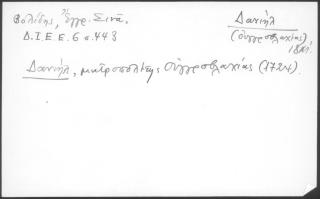 Βολίδης, ἔγγρ. Σινᾶ.
Δ.Ι.Ε.Ε. 6 σ. 443
Δανιήλ
(Οὐγγροβλαχίας)
Δανιήλ, μητροπολίτης Οὐγγροβλαχίας (1724).